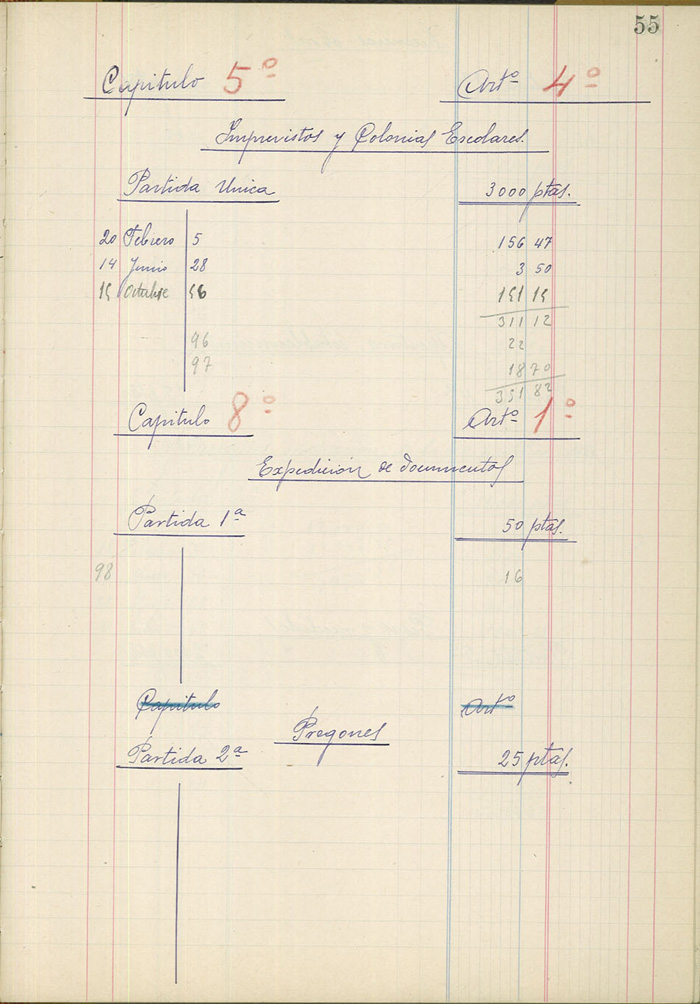 55
Capitulo 5º Artº 4º
Imprevistos y Colonias Escolares.
Partida Unica 3000 ptas.
20 Febrero 5 156 47
14 Junio 28 3 50
15 Octubre 56 151 15
311 12
96 22
97 18 70
351 82
Capitulo 8º Artº 1º
Expedición de documentos
Partida 1ª 50 ptas.
98 16
Capitulo Artº
Pregones
Partida 2ª 25 ptas.